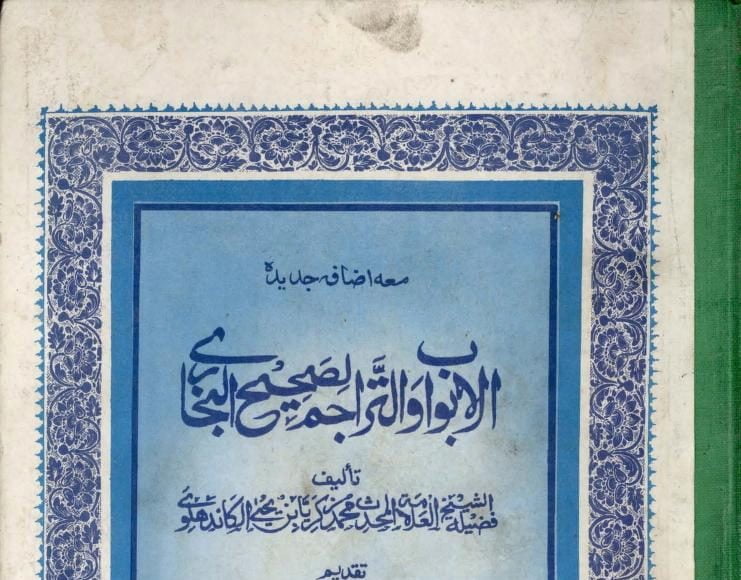 معه اضافہ جدیدہ
الابواب والتَّراجم لِصَحِيْحِ البُخَارى
تأليف
فضيلة الشيخ العلامة المحدث محمد زكريا بن يحيى الكاندهلوى
تقديم